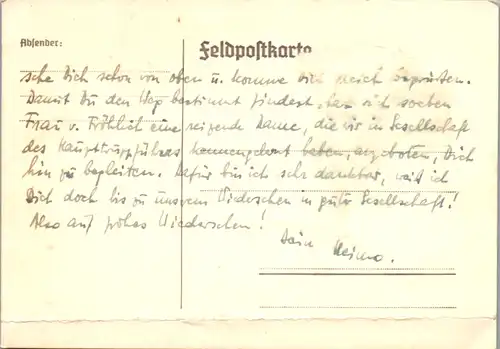 Absender:
Feldpostkarte
sehe Dich schon von oben u. komme Dich gleich begrüßen.
Damit Du den Weg bestimmt findest, hat sich soeben
Frau v. Fröhlich eine reizende Dame, die wir in Gesellschaft
des Haupttruppführers kennengelernt haben, angeboten, Dich
hin zu begleiten. Dafür bin ich sehr dankbar, weiß ich
Dich doch bis zu unsrem Wiedersehen in guter Gesellschaft!
Also auf frohes Wiedersehen!
Dein Heimo.